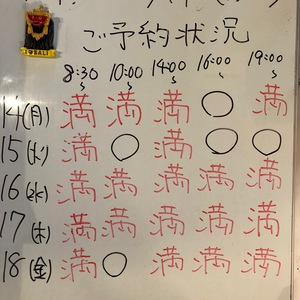 I ♥ BALI
ご予約状況
8:30～ 10:00～ 14:00～ 16:00～ 19:00～
14(月) 満 満 満 ○ 満
15(火) 満 ○ 満 ○ ○
16(水) 満 満 満 満 満
17(木) 満 満 満 満 満
18(金) 満 ○ 満 満 満